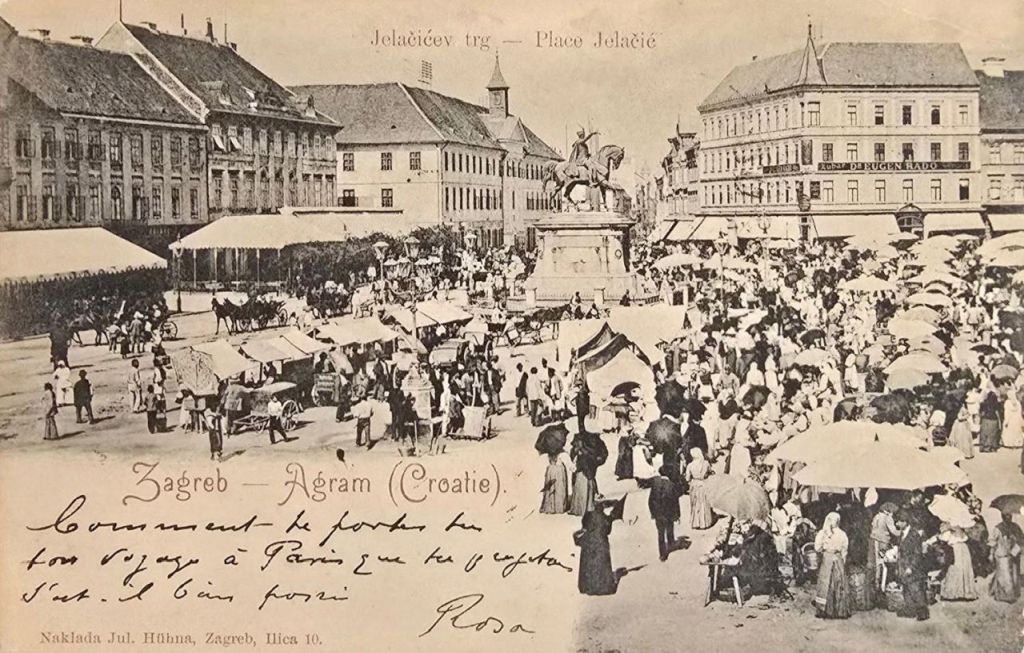 Jelačićev trg — Place Jelačić
Dr EUGEN RADO
Zagreb — Agram (Croatie).
Comment te portes tu
ton voyage à Paris que tu projetais
s'est-il bien passé
Rosa
Naklada Jul. Hühna, Zagreb, Ilica 10.